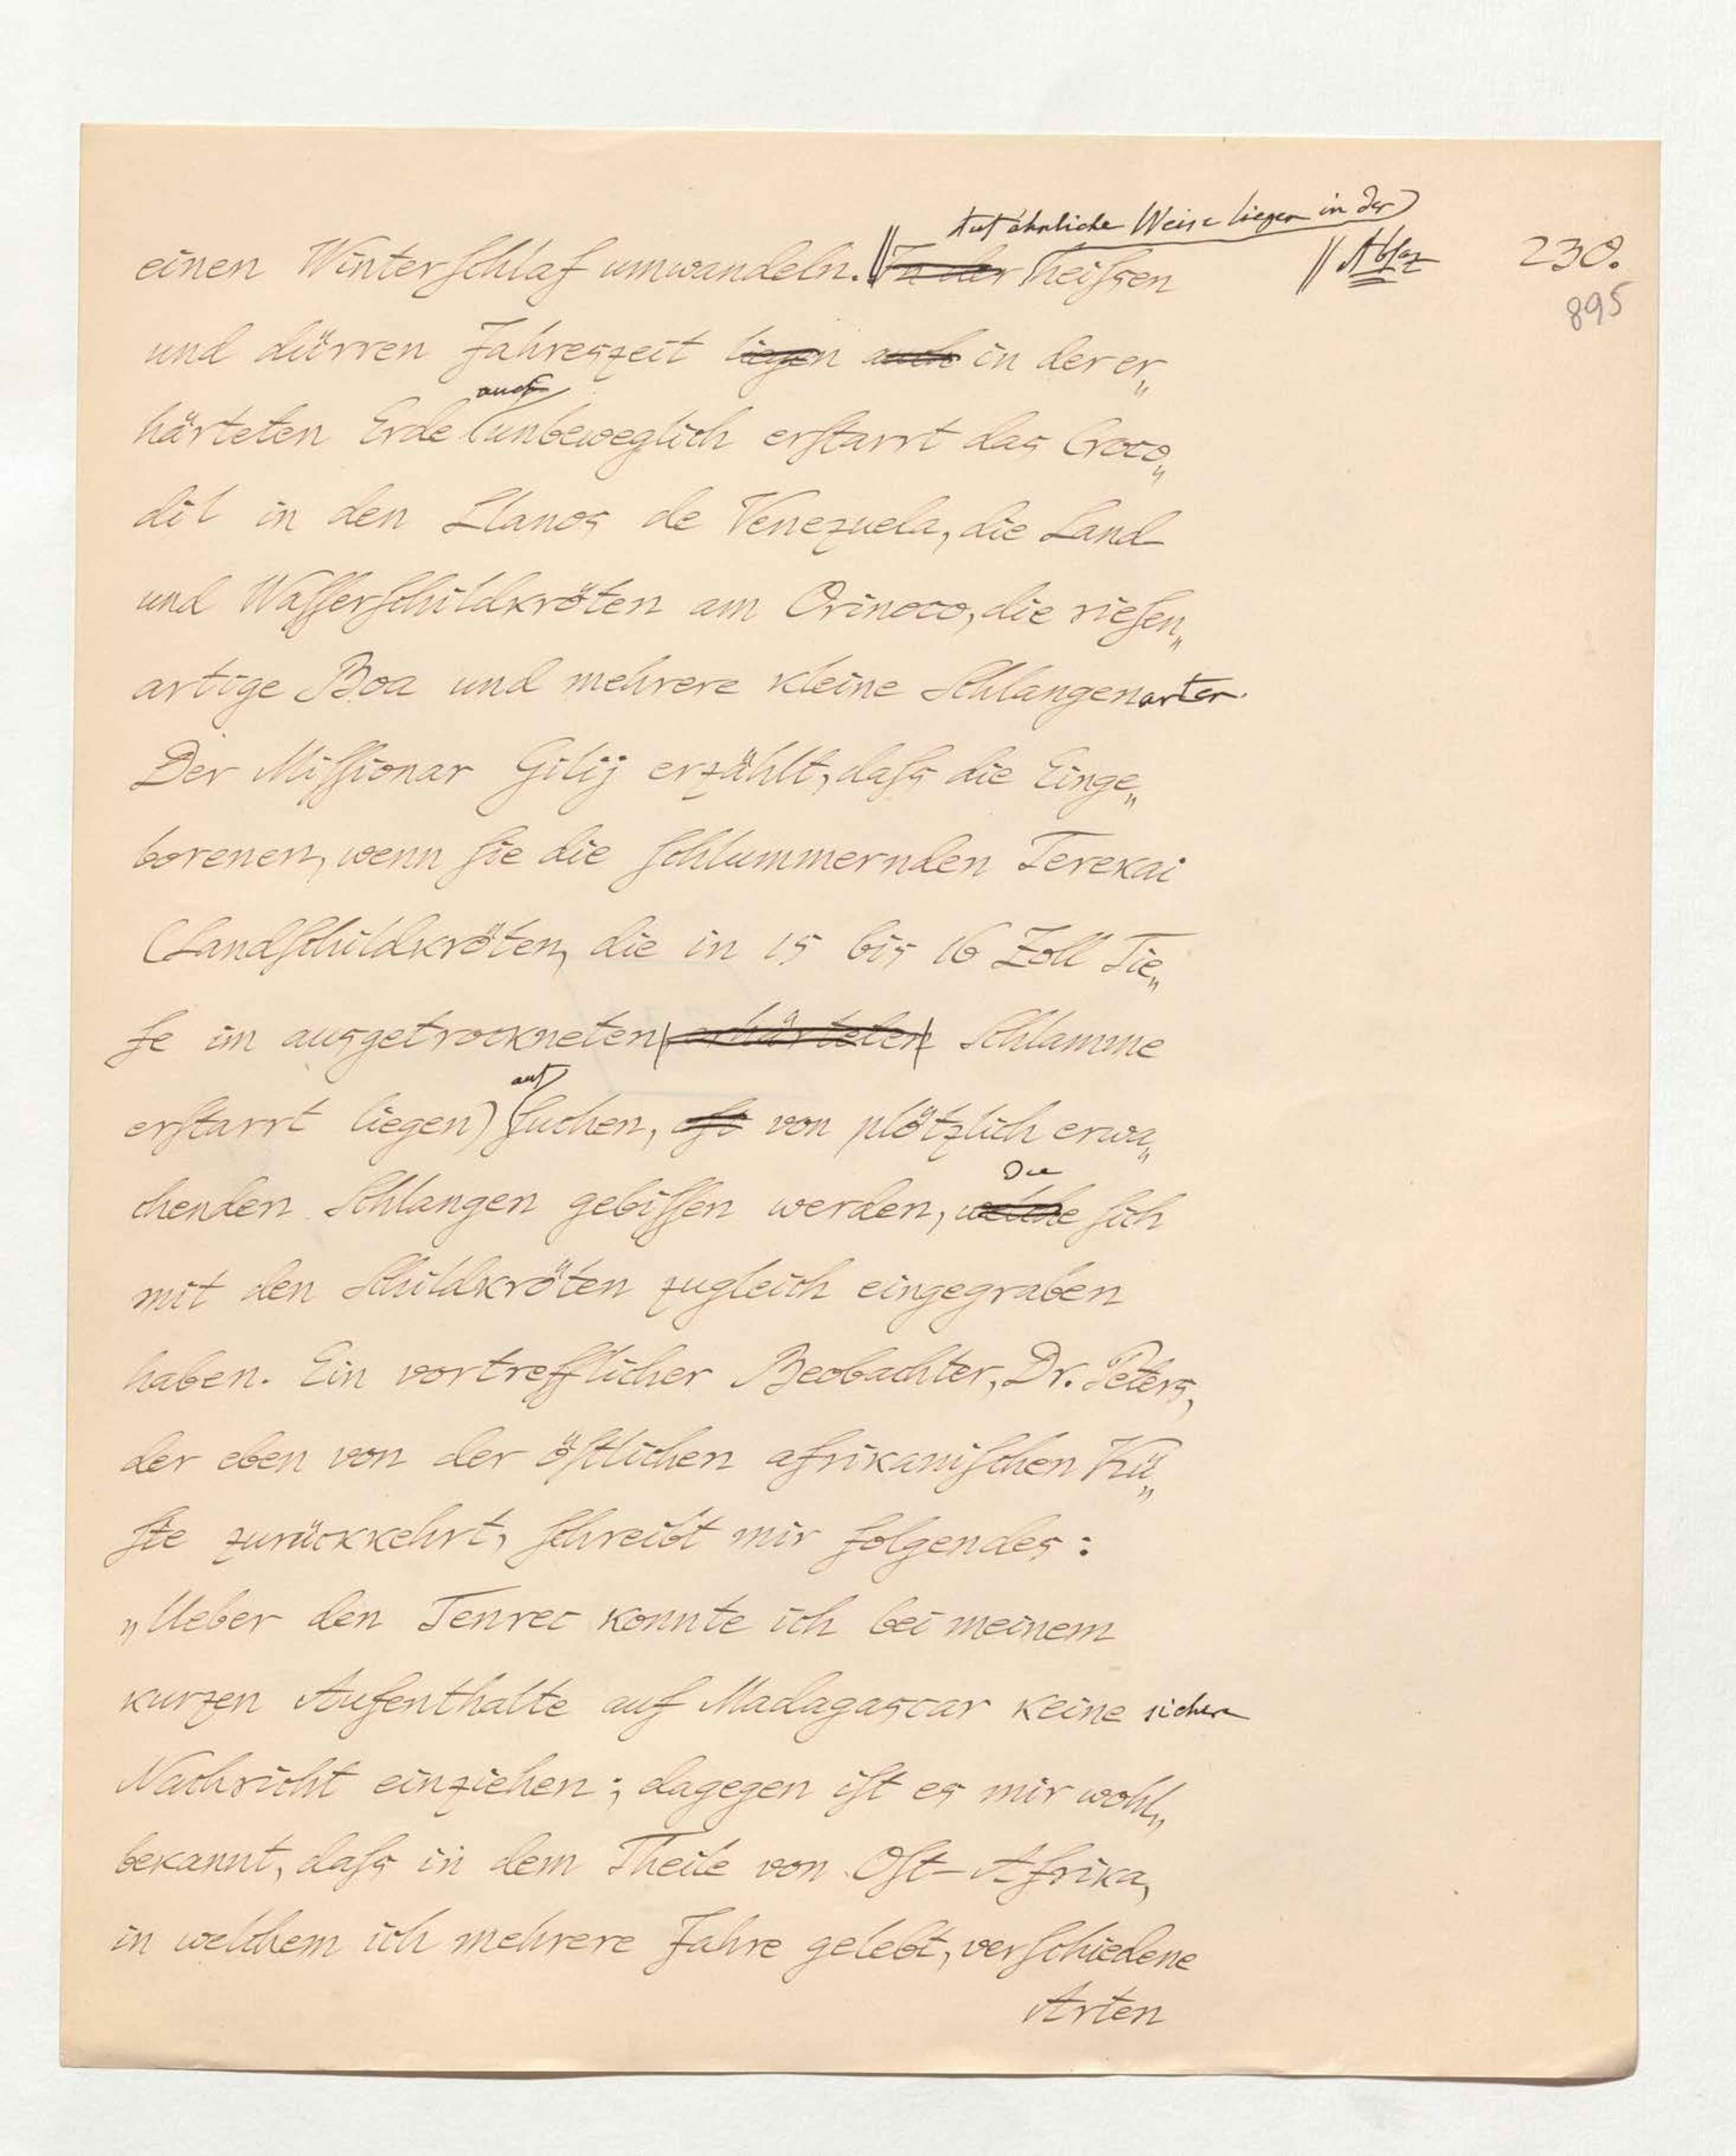 Auf ähnliche Weise liegen in der
einen Winterschlaf umwandeln. || In der heissen || Absaz 230.
895
und dürren Jahreszeit liegen auch in der er„
auch
härteten Erde unbeweglich erstarrt das Croco„
dil in den Llanos de Venezuela, die Land
und Wasserschildkröten am Orinoco, die riesen„
artige Boa und mehrere kleine Schlangenarten.
Der Missionar Gilij erzählt, dass die Einge„
borenen, wenn sie die schlummernden Terekai
(Landschildkröten, die in 15 bis 16 Zoll Tie„
fe im ausgetrockneten erhärteten Schlamme
auf
erstarrt liegen) suchen, oft von plötzlich erwa„
die
chenden Schlangen gebissen werden, welche sich
mit den Schildkröten zugleich eingegraben
haben. Ein vortrefflicher Beobachter, Dr. Peters,
der eben von der östlichen afrikanischen Kü„
ste zurückkehrt, schreibt mir folgendes:
„Ueber den Tenrec konnte ich bei meinem
kurzen Aufenthalte auf Madagascar keine sichere
Nachricht einziehen; dagegen ist es mir wohl„
bekannt, dass in dem Theile von Ost-Afrika,
in welchem ich mehrere Jahre gelebt, verschiedene
Arten